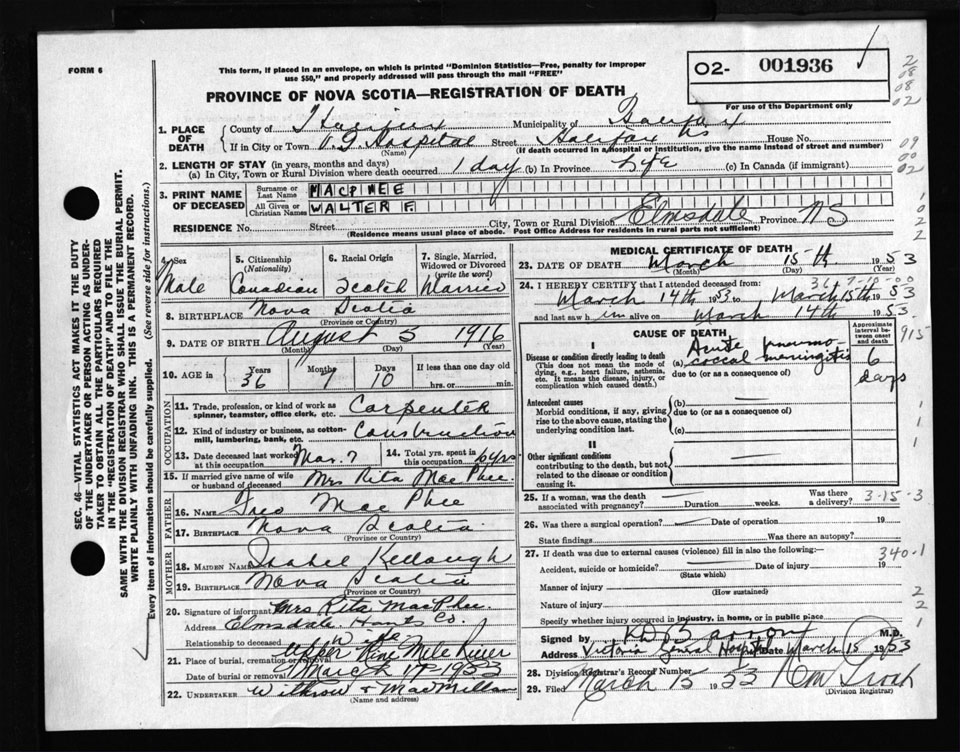 FORM 6
This form, if placed in an envelope, on which is printed "Dominion Statistics—Free, penalty for improper
use $50," and properly addressed will pass through the mail "FREE"
O2- 001936
For use of the Department only
2
08
08
02
PROVINCE OF NOVA SCOTIA—REGISTRATION OF DEATH
1. PLACE OF DEATH
County of Halifax Municipality of Halifax
If in City or Town V. G. Hospital Street Halifax NS House No.
(Name) (If death occurred in a hospital or institution, give the name instead of street and number)
09
00
02
2. LENGTH OF STAY (in years, months and days)
(a) In City, Town or Rural Division where death occurred 1 day (b) In Province Life (c) In Canada (if immigrant)
3. PRINT NAME OF DECEASED
Surname or Last Name MACPHEE
All Given or Christian Names WALTER F.
1
0
2
2
RESIDENCE No. Street City, Town or Rural Division Elmsdale Province NS
(Residence means usual place of abode. Post Office Address for residents in rural parts not sufficient)
SEC. 46—VITAL STATISTICS ACT MAKES IT THE DUTY
OF THE UNDERTAKER OR PERSON ACTING AS UNDER-
TAKER TO OBTAIN ALL THE PARTICULARS REQUIRED
IN THE "REGISTRATION OF DEATH" AND TO FILE THE
SAME WITH THE DIVISION REGISTRAR WHO SHALL ISSUE THE BURIAL PERMIT.
WRITE PLAINLY WITH UNFADING INK. THIS IS A PERMANENT RECORD.
Every item of information should be carefully supplied. (See reverse side for instructions.)
4. Sex Male
5. Citizenship (Nationality) Canadian
6. Racial Origin Scotch
7. Single, Married, Widowed or Divorced (write the word) Married
8. BIRTHPLACE Nova Scotia
(Province or Country)
9. DATE OF BIRTH August 5 1916
(Month) (Day) (Year)
10. AGE Years 36 Months 7 Days 10 If less than one day
hrs. or min.
OCCUPATION
11. Trade, profession, or kind of work as spinner, teamster, office clerk, etc. Carpenter
12. Kind of industry or business, as cotton-mill, lumbering, bank, etc. Construction
13. Date deceased last worked at this occupation Mar. 7
14. Total yrs. spent in this occupation 6 yrs
15. If married give name of wife or husband of deceased Mrs Rita MacPhee
FATHER
16. Name Mac Phee
17. Birthplace Nova Scotia
(Province or Country)
MOTHER
18. MAIDEN NAME Isabel Kellough
19. BIRTHPLACE Nova Scotia
(Province or Country)
20. Signature of informant Mrs Rita MacPhee
Address Elmsdale Hants Co.
Relationship to deceased Wife
21. Place of burial, cremation or removal Upper Nine Mile River
Date of burial or removal March 17 1953
22. UNDERTAKER Withrow & MacMillan
(Name and address)
MEDICAL CERTIFICATE OF DEATH
23. DATE OF DEATH March 15th 1953
(Month) (Day) (Year)
24. I HEREBY CERTIFY that I attended deceased from:
March 14th 1953 to March 15th 1953
and last saw him alive on March 14th 1953.
CAUSE OF DEATH
Approximate interval between onset and death
915
I
Disease or condition directly leading to death
(This does not mean the mode of dying, e.g., heart failure, asthenia, etc. It means the disease, injury, or complication which caused death.)
(a) Acute pneumococcal meningitis 6 days
due to (or as a consequence of)
Antecedent causes
Morbid conditions, if any, giving rise to the above cause, stating the underlying condition last.
(b)
due to (or as a consequence of)
(c)
1
1
1
II
Other significant conditions
contributing to the death, but not related to the disease or condition causing it.
25. If a woman, was the death associated with pregnancy? Duration weeks. Was there a delivery?
3-15-3
26. Was there a surgical operation? Date of operation 19
State findings Was there an autopsy?
27. If death was due to external causes (violence) fill in also the following:
340-1
Accident, suicide or homicide? Date of injury 19
(State which)
Manner of injury
(How sustained)
2
Nature of injury
2
Specify whether injury occurred in industry, in home, or in public place
1
Signed by M.D.
Address Victoria General Hospital Date March 15 1953
28. Division Registrar's Record Number
29. Filed March 15 1953
(Division Registrar)